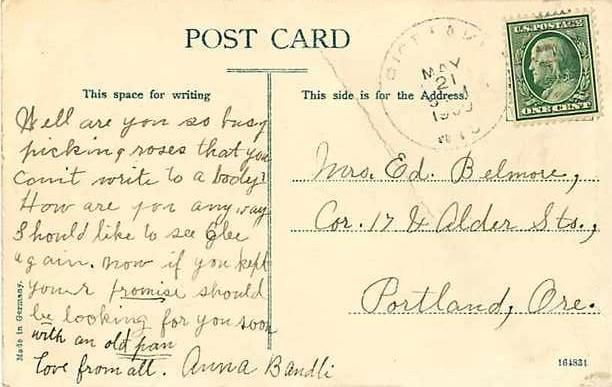 POST CARD
This space for writing
This side is for the Address.
U.S. POSTAGE
ONE CENT
MAY
21
1909
WIS
Well are you so busy
picking roses that you
can't write to a body?
How are you any way
Should like to see Glee
again. Now if you kept
your promise should
be looking for you soon
with an old pan
love from all. Anna Bandli
Mrs. Ed. Belmore,
Cor. 17 & Alder Sts.,
Portland, Ore.
Made in Germany.
164834